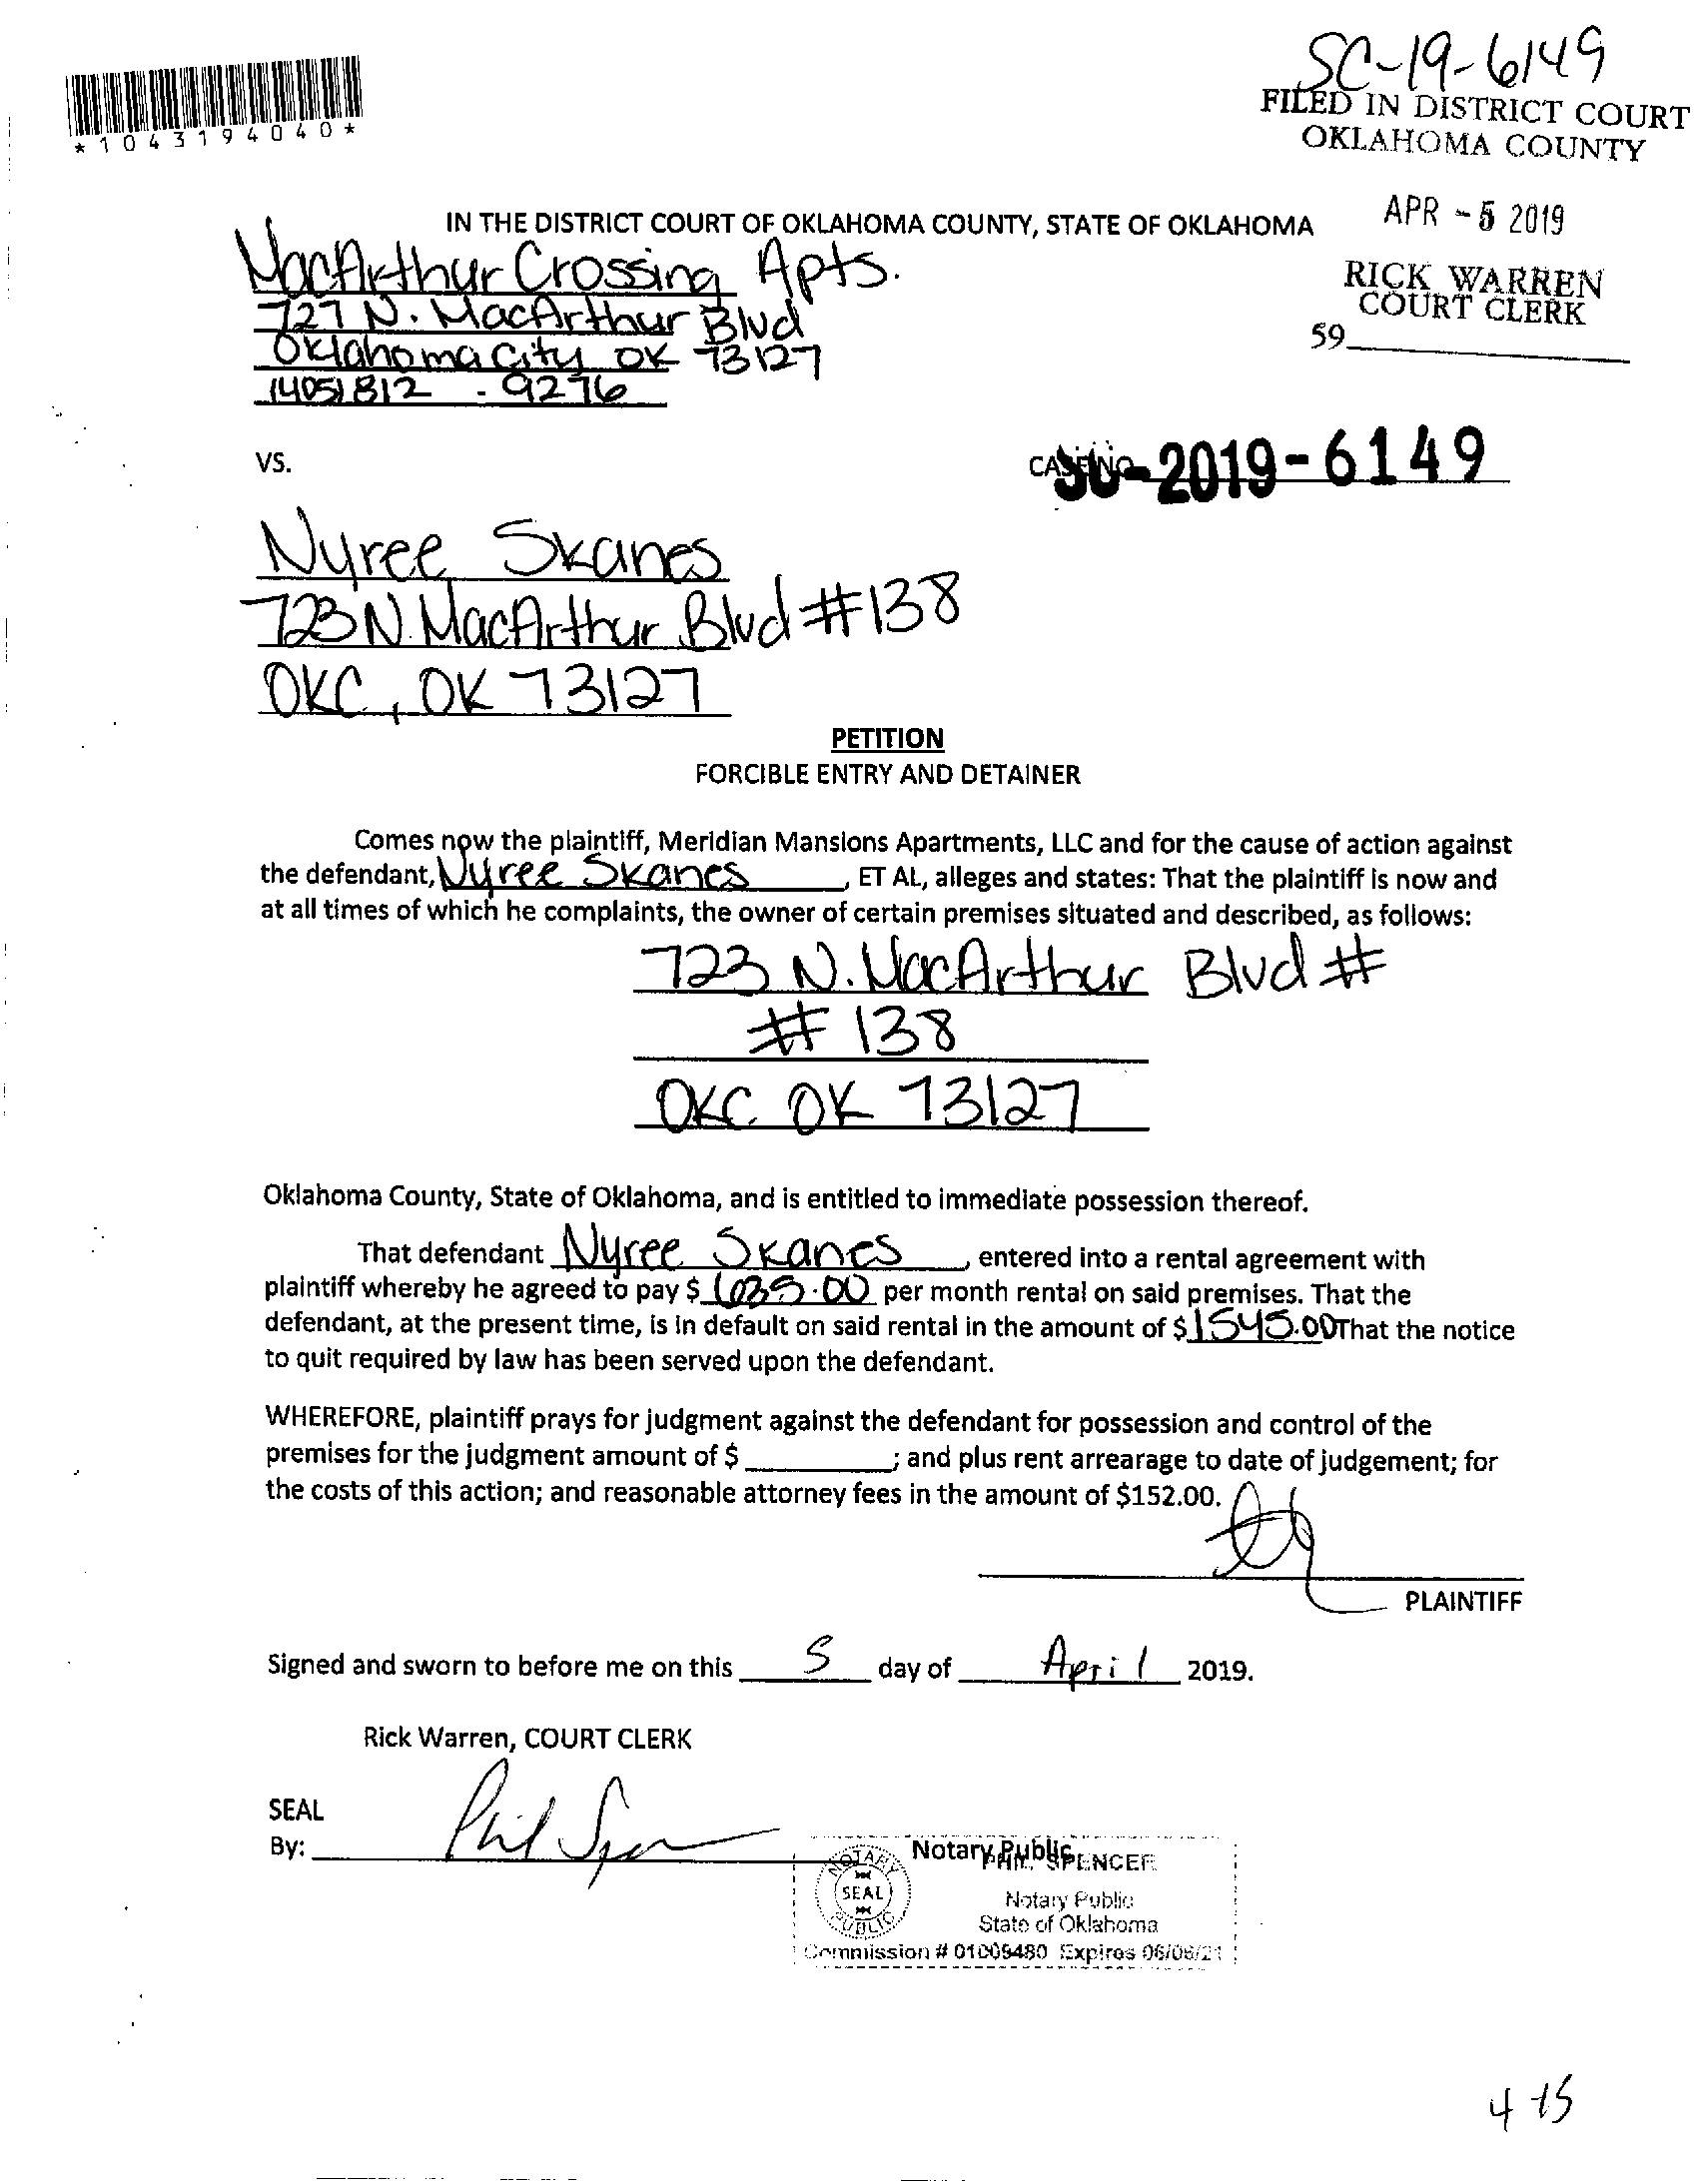 SC-19-6149
*1043194040*
FILED IN DISTRICT COURT
OKLAHOMA COUNTY
APR - 5 2019
RICK WARREN
COURT CLERK
59
IN THE DISTRICT COURT OF OKLAHOMA COUNTY, STATE OF OKLAHOMA
MacArthur Crossing Apts.
727 N. MacArthur Blvd
Oklahoma City OK 73127
(405) 812 - 9276
VS.
CASE NO. SC-2019-6149
Nyree Skanes
723 N. MacArthur Blvd #138
OKC, OK 73127
PETITION
FORCIBLE ENTRY AND DETAINER
Comes now the plaintiff, Meridian Mansions Apartments, LLC and for the cause of action against
the defendant, Nyree Skanes, ET AL, alleges and states: That the plaintiff is now and
at all times of which he complaints, the owner of certain premises situated and described, as follows:
723 N. MacArthur Blvd #
# 138
OKC OK 73127
Oklahoma County, State of Oklahoma, and is entitled to immediate possession thereof.
That defendant Nyree Skanes, entered into a rental agreement with
plaintiff whereby he agreed to pay $ per month rental on said premises. That the
defendant, at the present time, is in default on said rental in the amount of $1545.00 That the notice
to quit required by law has been served upon the defendant.
WHEREFORE, plaintiff prays for judgment against the defendant for possession and control of the
premises for the judgment amount of $ ; and plus rent arrearage to date of judgement; for
the costs of this action; and reasonable attorney fees in the amount of $152.00.
PLAINTIFF
Signed and sworn to before me on this 5 day of April 2019.
Rick Warren, COURT CLERK
SEAL
By: Phil Spencer
Notary Public
PHIL SPENCER
NOTARY PUBLIC SEAL
Notary Public
State of Oklahoma
Commission # 01005480 Expires 06/06/21
4-15